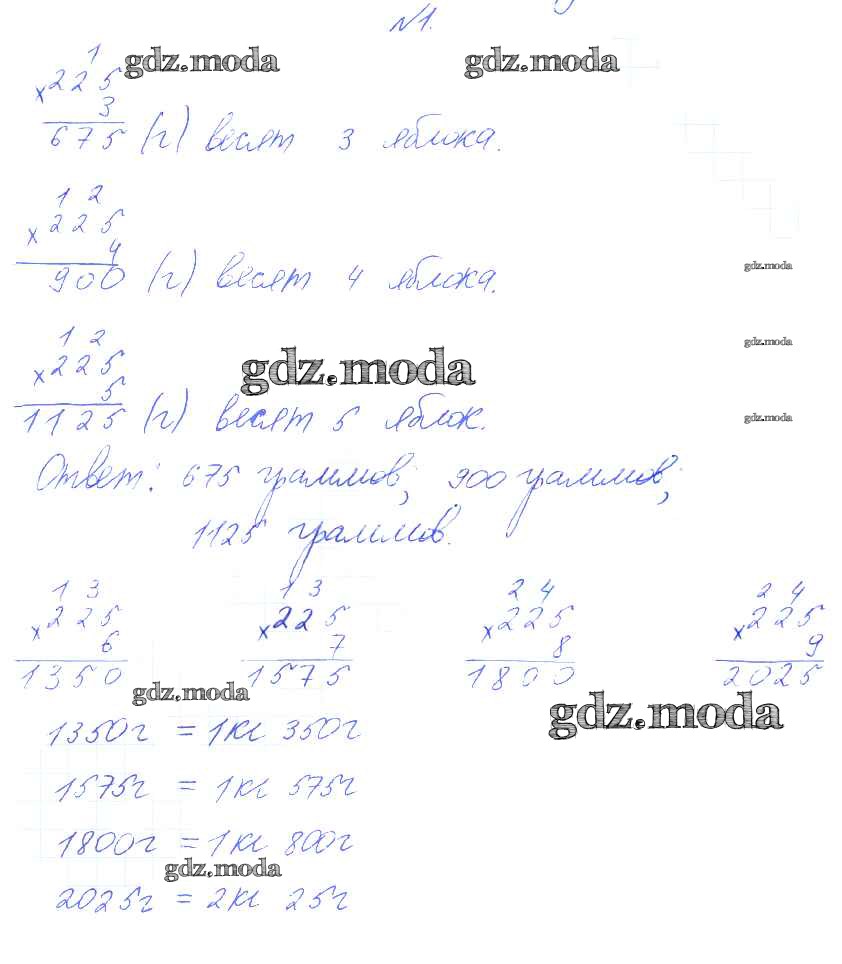 №1.
1
gdz.moda gdz.moda
× 225
3
675 (г) весят 3 яблока.
1 2
× 225
4
900 (г) весят 4 яблока.
gdz.moda
1 2
gdz.moda
× 225
gdz.moda
5
1125 (г) весят 5 яблок.
gdz.moda
Ответ: 675 граммов; 900 граммов;
1125 граммов.
1 3 1 3 2 4 2 4
× 225 × 225 × 225 × 225
6 7 8 9
1350 1575 1800 2025
gdz.moda
gdz.moda
1350г = 1кг 350г
1575г = 1кг 575г
1800г = 1кг 800г
gdz.moda
2025г = 2кг 25г